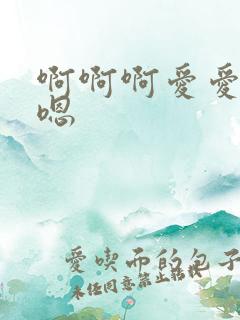 啊啊啊爱爱
嗯
爱吃而的包子
未经同意禁止转载